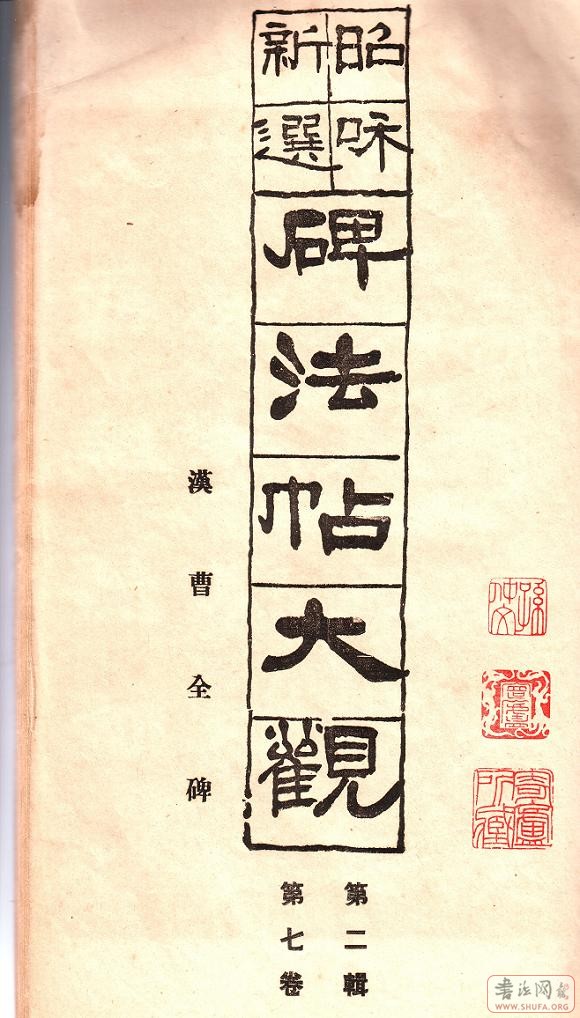 寄廬
所藏
昭咊
新選
碑法帖大觀
第二輯
第七卷
漢曹全碑
书法网
WWW.SHUFA.ORG